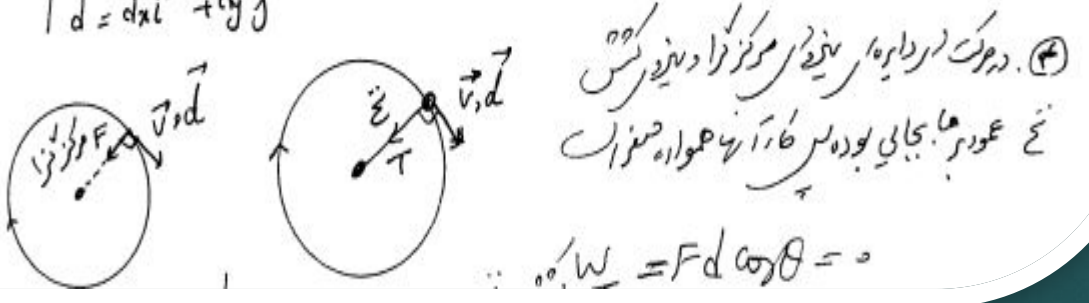 d = dxi + dyj
⊛. در حرکت دایره‌ای نیروی مرکزگرا و نیروی کشش
نخ عمود بر جابجایی بوده پس کار آنها همواره صفر است
W = Fd cosθ = 0
F مرکزگرا
v, d
نخ
T
v, d